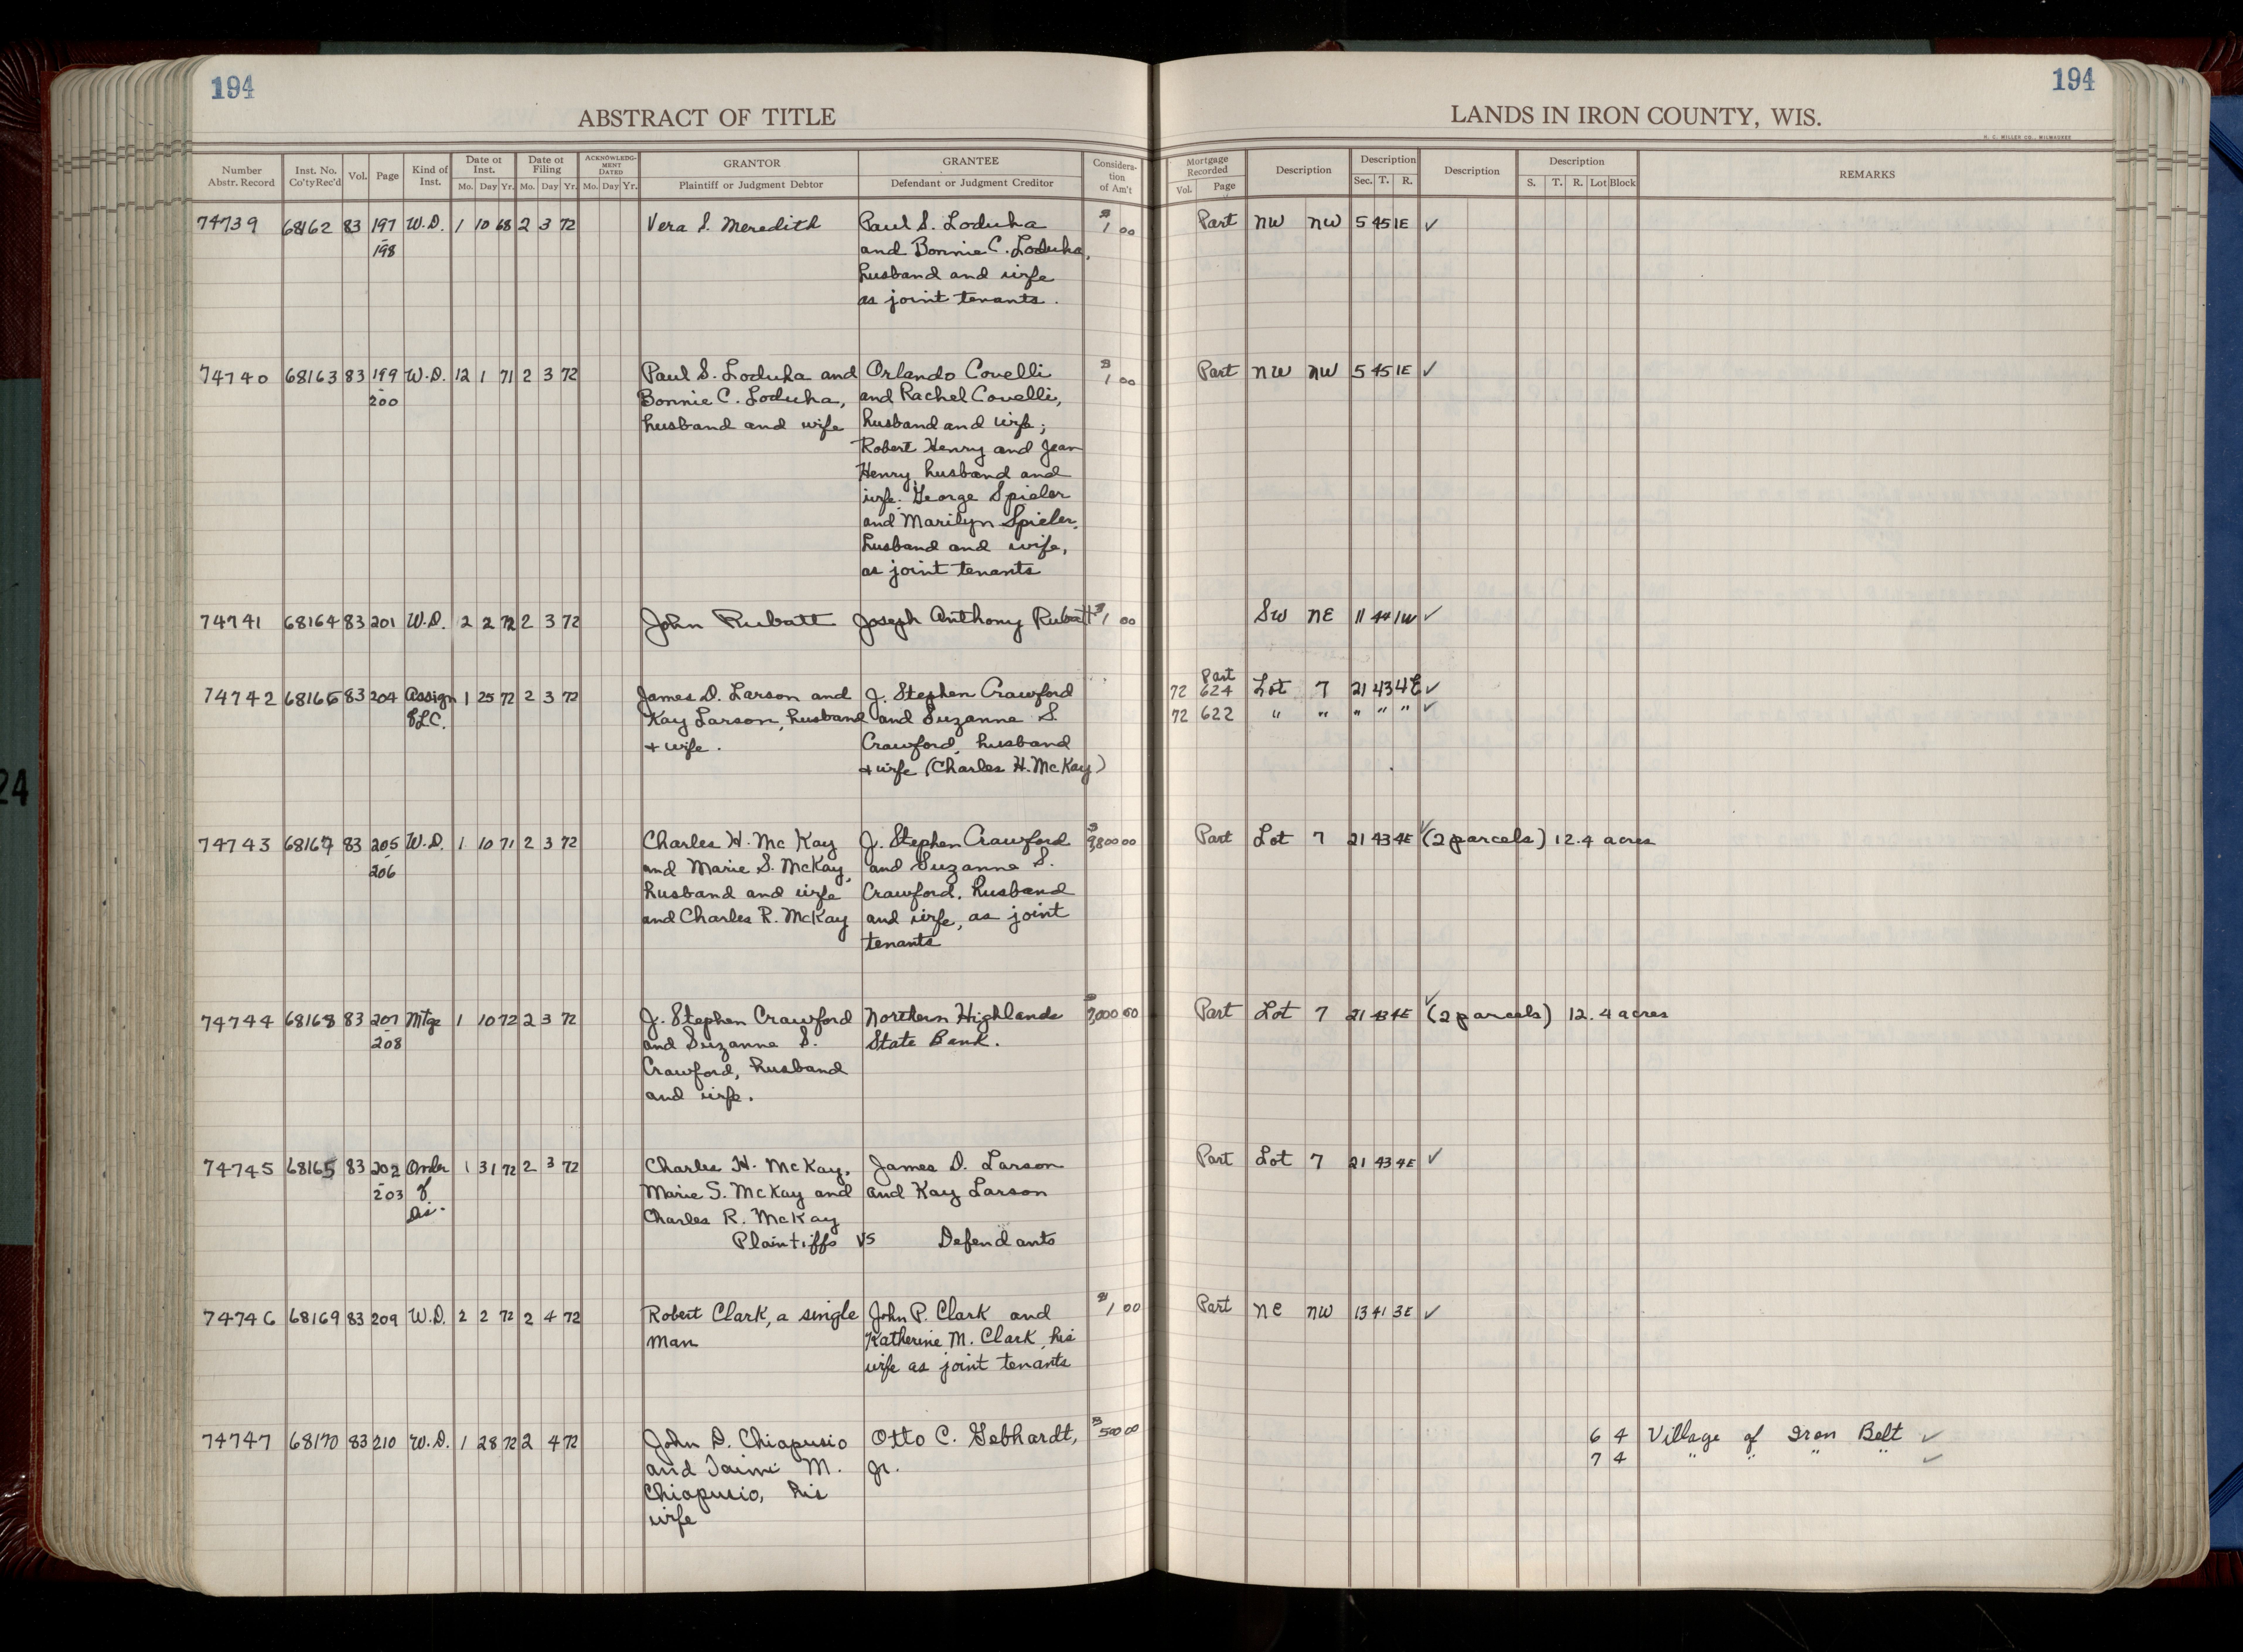 194
194
ABSTRACT OF TITLE
LANDS IN IRON COUNTY, WIS.
H. C. MILLER CO., MILWAUKEE
Number Abstr. Record | Inst. No. Co'ty Rec'd | Vol. | Page | Kind of Inst. | Date of Inst. Mo. Day Yr. | Date of Filing Mo. Day Yr. | ACKNOWLEDGMENT DATED Mo. Day Yr. | GRANTOR Plaintiff or Judgment Debtor | GRANTEE Defendant or Judgment Creditor | Consideration of Am't | Mortgage Recorded Vol. Page | Description | Description Sec. T. R. | Description | Description S. T. R. Lot Block | REMARKS
74739 68162 83 197 W.D. 1 10 68 2 3 72 Vera S. Meredith Paul S. Loduha $1 00 Part NW NW 5 45 1E ✓
- 198 and Bonnie C. Loduha,
husband and wife
as joint tenants.
74740 68163 83 199 W.D. 12 1 71 2 3 72 Paul S. Loduha and Orlando Covelli $1 00 Part NW NW 5 45 1E ✓
- 200 Bonnie C. Loduha, and Rachel Covelli,
husband and wife husband and wife;
Robert Henry and Jean
Henry, husband and
wife. George Spieler
and Marilyn Spieler,
husband and wife,
as joint tenants
74741 68164 83 201 W.D. 2 2 72 2 3 72 John Rubatt Joseph Anthony Rubatt $1 00 SW NE 11 44 1W ✓
Part
74742 68166 83 204 Assign 1 25 72 2 3 72 James D. Larson and J. Stephen Crawford 72 624 Lot 7 21 43 4E ✓
of L.C. Kay Larson, husband and Suzanne S. 72 622 " " " " " ✓
+ wife. Crawford, husband
+ wife (Charles H. McKay)
74743 68167 83 205 W.D. 1 10 71 2 3 72 Charles H. McKay J. Stephen Crawford $9,800 00 Part Lot 7 21 43 4E ✓ (2 parcels) 12.4 acres
- 206 and Marie S. McKay, and Suzanne S.
husband and wife Crawford, husband
and Charles R. McKay and wife, as joint
tenants
74744 68168 83 207 Mtge 1 10 72 2 3 72 J. Stephen Crawford Northern Highlands $9,000 00 Part Lot 7 21 43 4E ✓ (2 parcels) 12.4 acres
- 208 and Suzanne S. State Bank.
Crawford, husband
and wife.
74745 68165 83 202 Order 1 31 72 2 3 72 Charles H. McKay, James D. Larson Part Lot 7 21 43 4E ✓
- 203 of Marie S. McKay and and Kay Larson
Dis. Charles R. McKay
Plaintiffs vs Defendants
74746 68169 83 209 W.D. 2 2 72 2 4 72 Robert Clark, a single John P. Clark and $1 00 Part NE NW 13 41 3E ✓
man Katherine M. Clark, his
wife as joint tenants
74747 68170 83 210 W.D. 1 28 72 2 4 72 John D. Chiapusio Otto C. Gebhardt, $500 00 6 4 Village of Iron Belt ✓
and Taimi M. Jr. 7 4 " " " " ✓
Chiapusio, his
wife
24